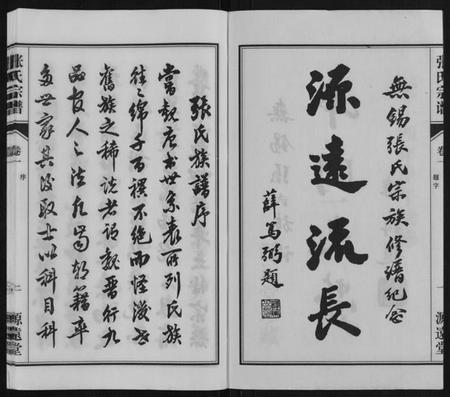 張氏宗譜
卷一
題字
一
源遠堂
無錫張氏宗族修譜紀念
源遠流長
薛篤弼題
張氏族譜序
嘗觀唐書世系表所列氏族
往往綿子百禩不絕而怪後世
舊族之稀說者謂魏晉行九
品官人之法凡
籍率
多世家其後取士以科目科
張氏宗譜
卷一
序
一
源遠堂